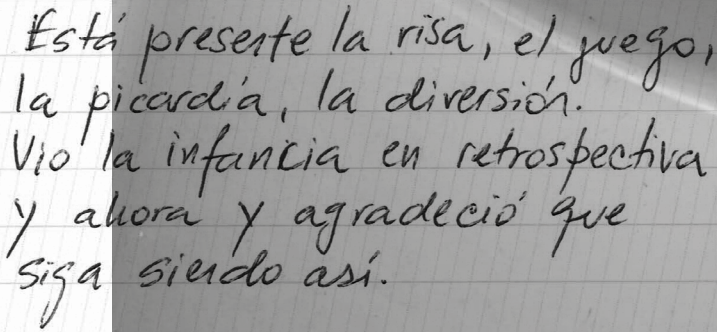 Está presente la risa, el juego,
la picardía, la diversión.
Vio la infancia en retrospectiva
y ahora y agradeció que
siga siendo así.